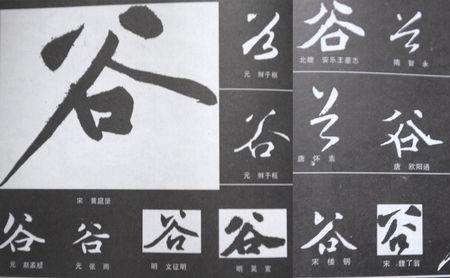 谷
宋 黄庭坚
谷
元 鲜于枢
谷
元 鲜于枢
谷
北魏 安乐王墓志
谷
隋 智永
谷
唐 怀素
谷
唐 欧阳通
谷
元 赵孟頫
谷
元 张雨
谷
明 文征明
谷
明 吴宽
谷
宋 楼钥
谷
宋 魏了翁